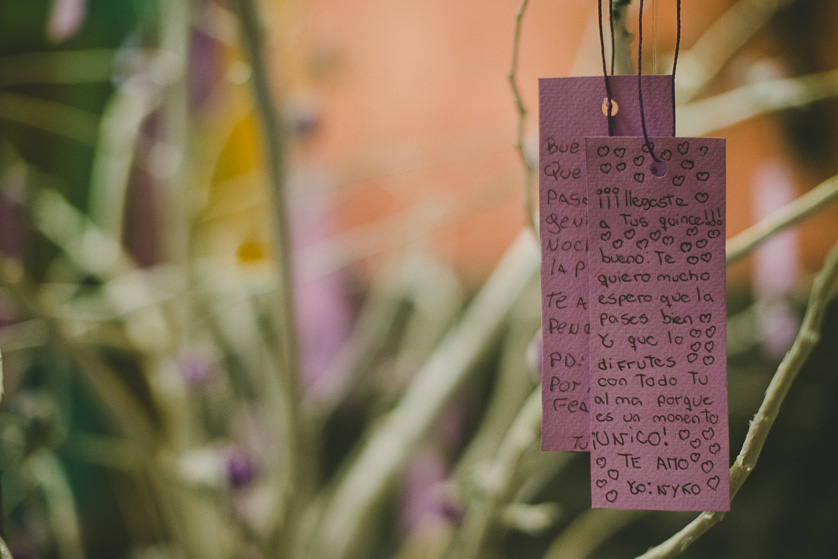 ¡¡¡llegaste
a Tus quince!!!
bueno. Te
quiero mucho
espero que la
pases bien
Y que lo
difrutes
con Todo Tu
alma porque
es un momento
¡UNICO!
TE AMO
Yo: NYKO
Bue
Que
PASE
geni
NOCH
la P
TE A
PD:
Por